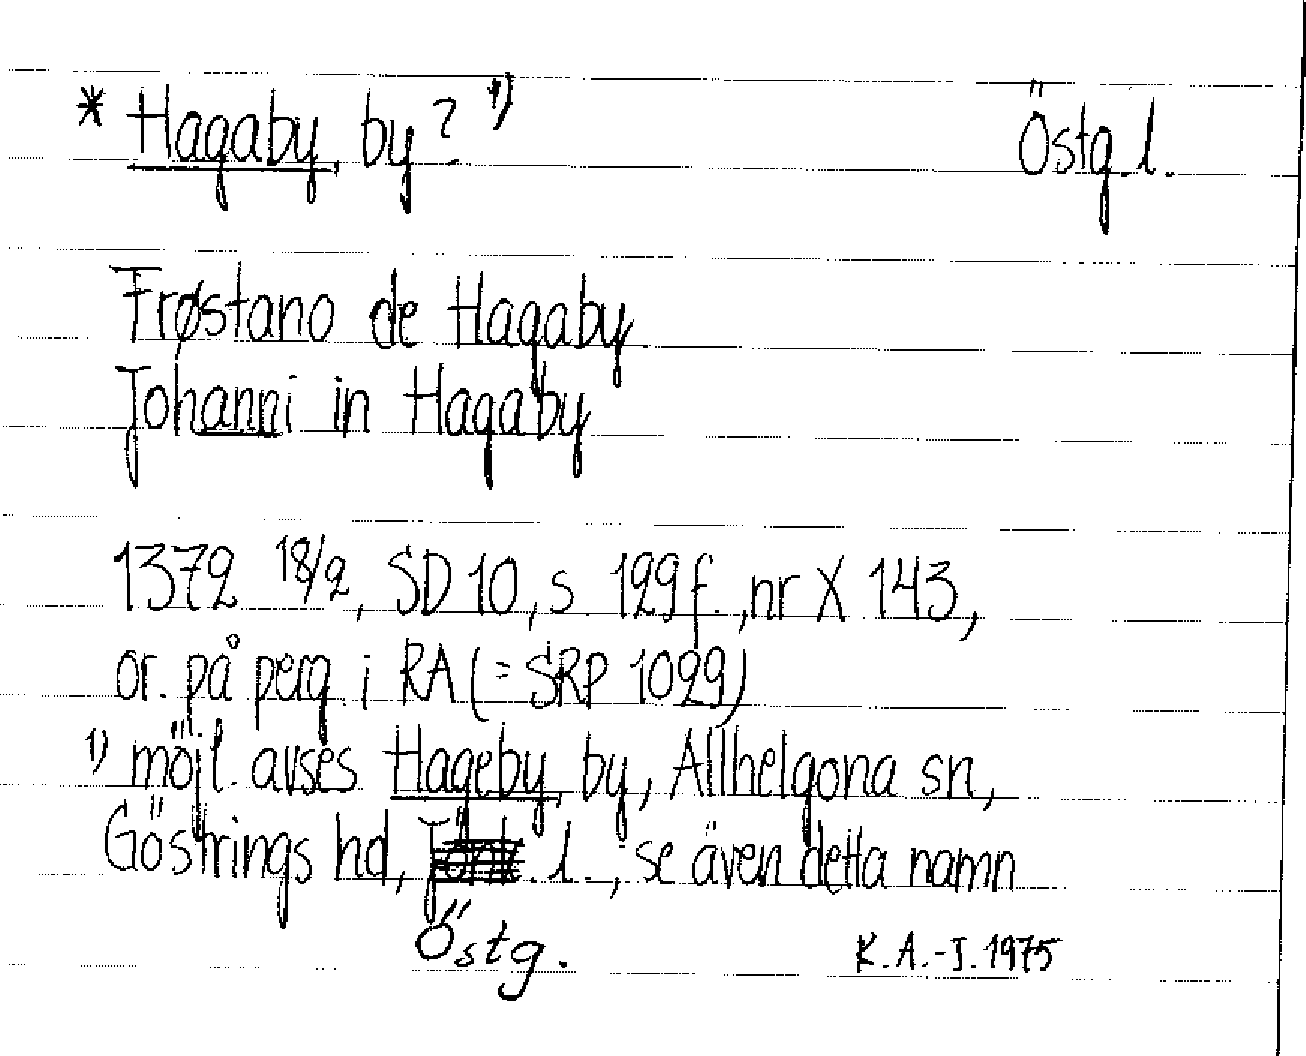 * Hagaby, by? 1) Östg. l.
Frøstano de Hagaby
Johanni in Hagaby
1372 18/2, SD 10, s. 129 f., nr X 143,
or. på perg. i RA (= SRP 1029)
1) möjl. avses Hageby by, Allhelgona sn,
Göstrings hd, Jönk. l., se även detta namn
Östg.
K.A.-J. 1975